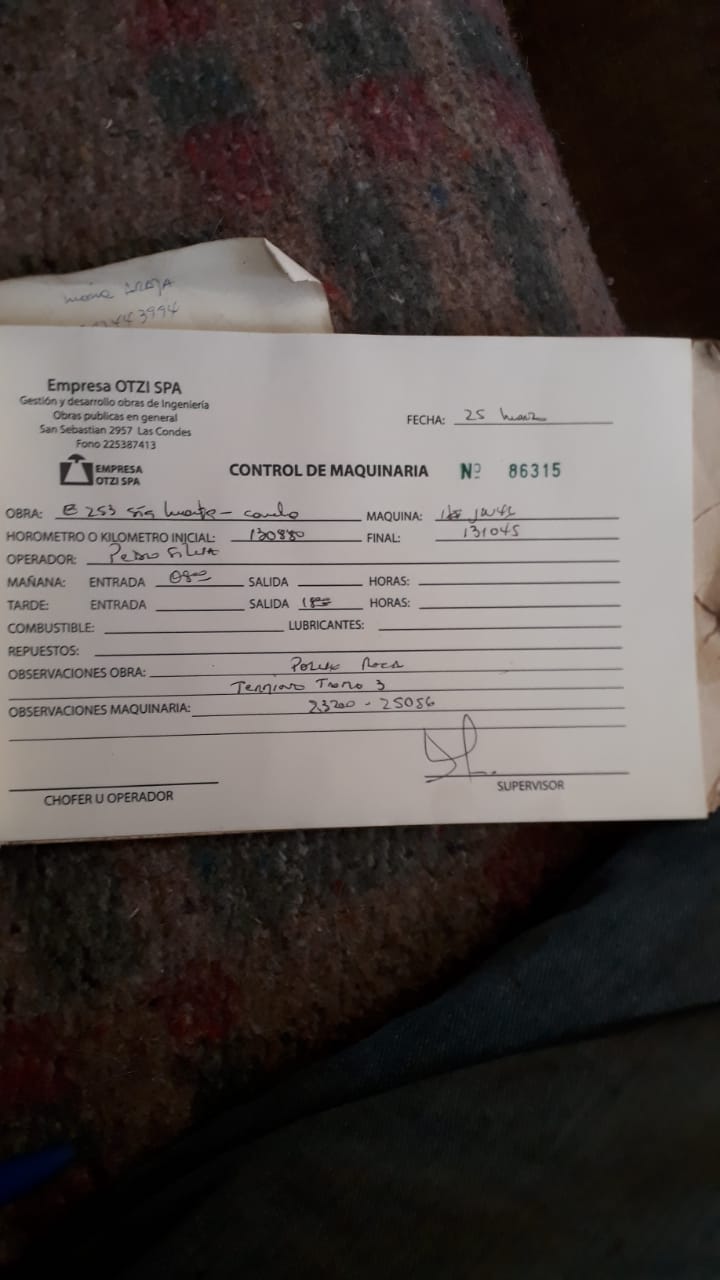 María
443994
Empresa OTZI SPA
Gestión y desarrollo obras de Ingeniería
Obras publicas en general
San Sebastian 2957 Las Condes
Fono 225387413
EMPRESA
OTZI SPA
FECHA: 25
CONTROL DE MAQUINARIA Nº 86315
OBRA: E 253 MAQUINA:
HOROMETRO O KILOMETRO INICIAL: 130880 FINAL: 131045
OPERADOR: Pedro Silva
MAÑANA: ENTRADA 08:00 SALIDA HORAS:
TARDE: ENTRADA SALIDA 18:00 HORAS:
COMBUSTIBLE: LUBRICANTES:
REPUESTOS:
OBSERVACIONES OBRA:
Termino Tramo 3
OBSERVACIONES MAQUINARIA: 23200 - 25056
CHOFER U OPERADOR SUPERVISOR